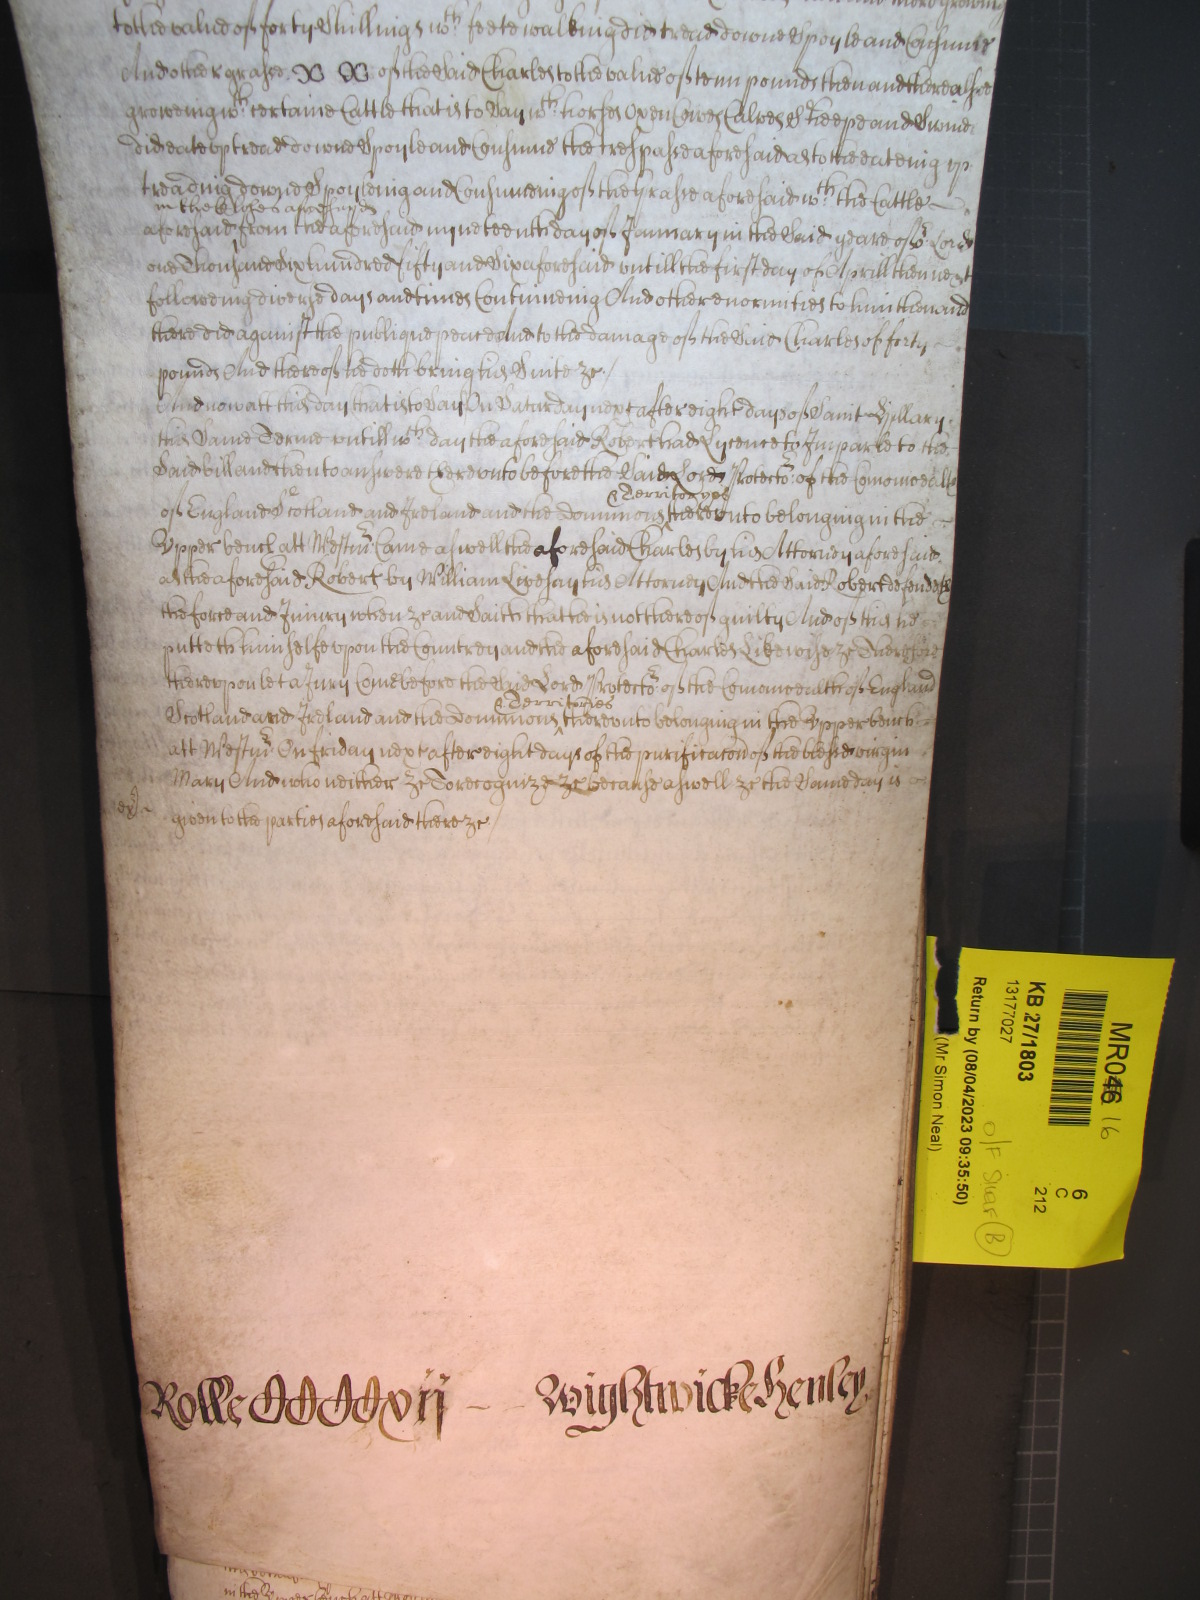 to the value of forty Shillings wth feete walking did tread downe Spoyle and Consume
And other grasse of the said Charles to the value of tenn pounds then and there alsoe
groweing wth certaine Cattle that is to Say wth horses Oxen Cowes Calves Sheepe and Swine
did eate up tread downe Spoyle and Consume the trespasse aforesaid as to the eateing up
treading downe Spoyleing and Consumeing of the grasse aforesaid wth the Cattle
in the
aforesaid from the aforesaid nyneteenth day of January in the Said yeare of or Lord
one Thousand Sixhundred fifty and Six aforesaid untill the first day of Aprill then next
followeing diverse days and times Continueing And other enormities to him then and
there did against the publique peace and to the damage of the Said Charles of forty
pounds And thereof he doth bring his Suite &c /
And now att this day that is to Say On Saturday next after eight days of Saint Hillary
this Same Terme untill wch day the aforesaid Robert had Lycence to Imparle to the
Said bill and then to answere thereunto before the Said Lord Protector of the Comonwealth
& Territoryes
of England Scotland and Ireland and the Dominions thereunto belonging in the
Upper bench att Westmr Came aswell the aforesaid Charles by his Attorney aforesaid
as the aforesaid Robert by William Livesay his Attorney And the Said Robert defendeth
the force and Injury when &c and Saith that he is not thereof guilty And of this he
putteth himselfe upon the Countrey and the aforesaid Charles Likewise &c Therefore
thereupon let a Jury Come before the Said Lord Protector of the Comonwealth of England
& Territories
Scotland and Ireland and the Dominions thereunto belonging in the Upper bench
att Westmr On Friday next after eight days of the purificacon of the blessed virgin
Mary And who neither &c To recognize &c because aswell &c the Same day is
given to the parties aforesaid there &c /
Rolle CCCCxvij - - Wightwicke Henley
MR046 16
KB 27/1803
13177027
Return by (08/04/2023 09:35:50)
(Mr Simon Neal)
6
C
212
O/F Shelf B